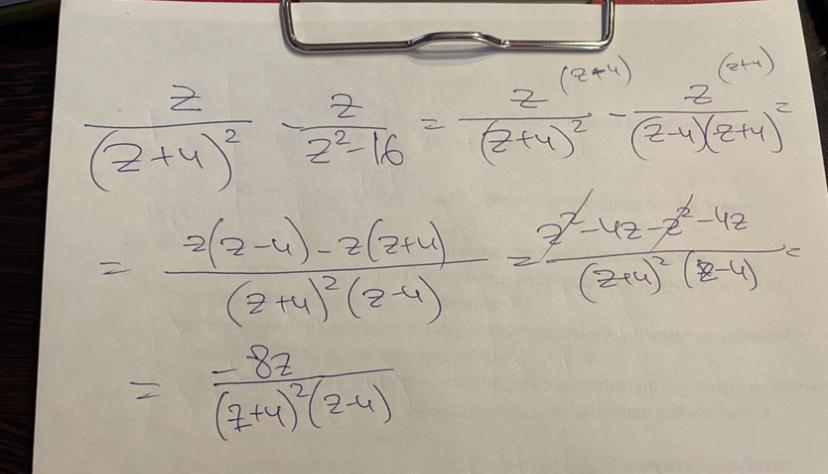 z/(z+4)² z/(z²-16) = z^(z-4)/(z+4)² - z^(z+4)/((z-4)(z+4)) =
= (z(z-4)-z(z+4))/((z+4)²(z-4)) = (z²-4z-z²-4z)/((z+4)²(z-4)) =
= -8z/((z+4)²(z-4))